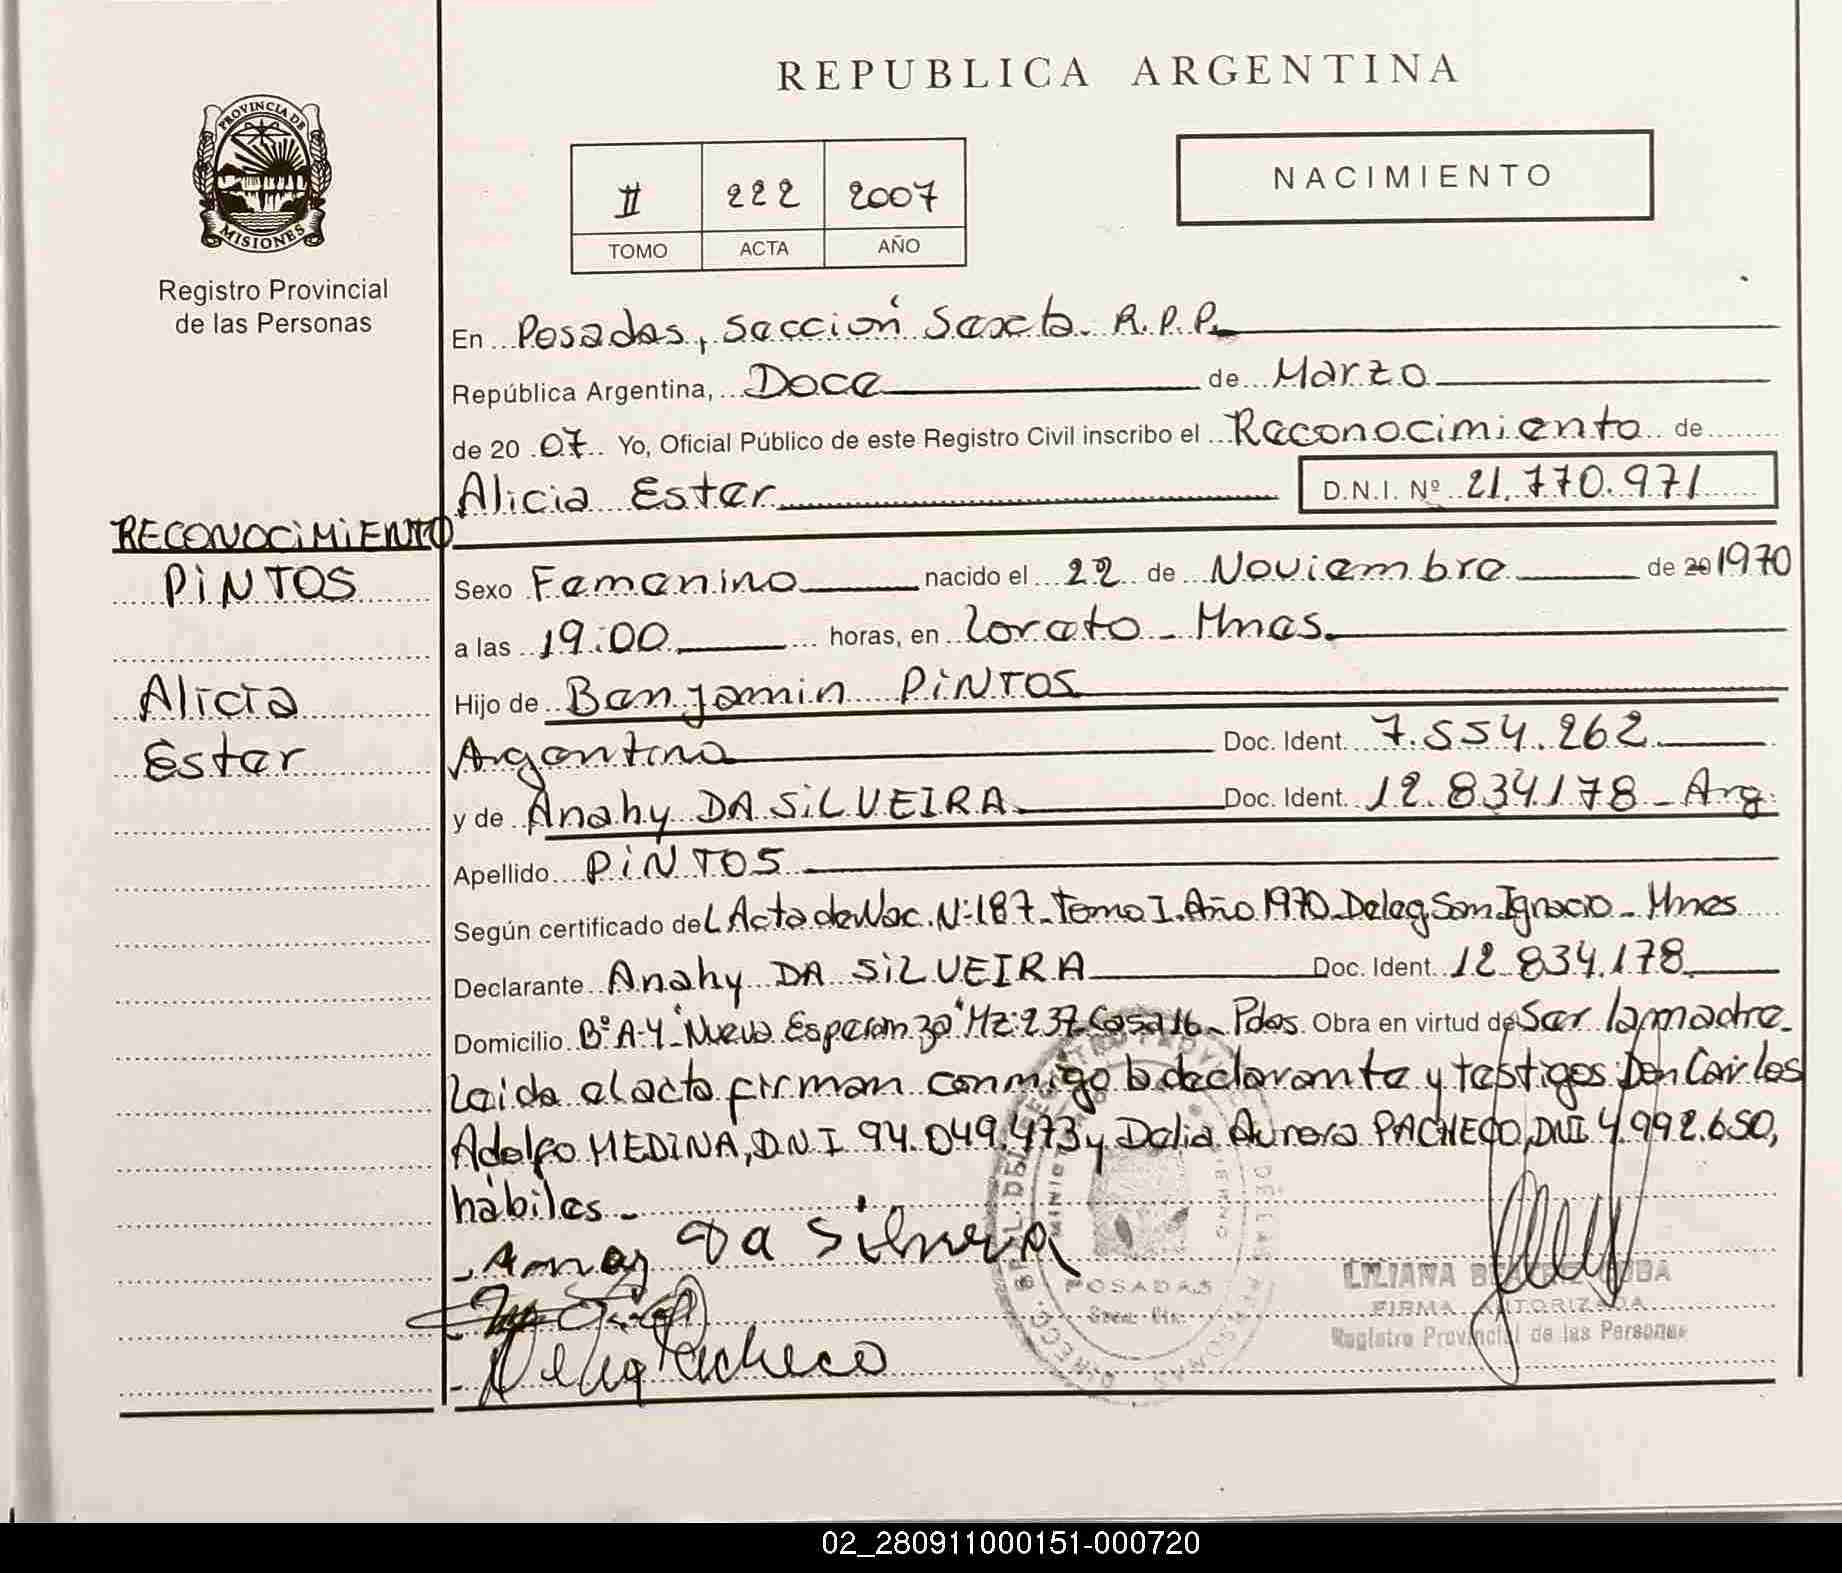 REPUBLICA ARGENTINA
PROVINCIA DE
MISIONES
Registro Provincial
de las Personas
II 222 2007
TOMO ACTA AÑO
NACIMIENTO
En Posadas, sección Sexta R.P.P.
República Argentina, Doce de Marzo
de 20 07 Yo, Oficial Público de este Registro Civil inscribo el Reconocimiento de
Alicia Ester D.N.I. Nº 21.770.971
RECONOCIMIENTO
PINTOS
Alicia
Ester
Sexo Femenino nacido el 22 de Noviembre de 20 1970
a las 19:00 horas, en Loreto - Mnes.
Hijo de Benjamin PINTOS
Argentino Doc. Ident. 7.554.262
y de Anahy DA SILVEIRA Doc. Ident. 12.834.178 - Arg.
Apellido PINTOS
Según certificado del Acta de Nac. Nº 187 - Tomo I. Año 1970 - Deleg. San Ignacio - Mnes
Declarante Anahy DA SILVEIRA Doc. Ident. 12.834.178.
Domicilio Bº A-4 "Nueva Esperanza" Mz: 237 Casa 16 - Pdas. Obra en virtud de Ser la madre.
Leida el acta firman conmigo la declarante y testigos: Don Carlos
Adolfo MEDINA, D.N.I 94.049.473 y Delia Aurora PACHECO, DNI 4.992.650,
hábiles -
Da Silveira
Delia Pacheco
POSADAS
LILIANA
FIRMA AUTORIZADA
Registro Provincial de las Personas
02_280911000151-000720